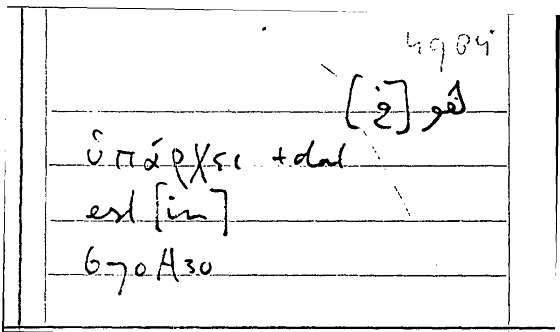 4984
هو [في]
ὑπάρχει + dat
est [in]
670A30